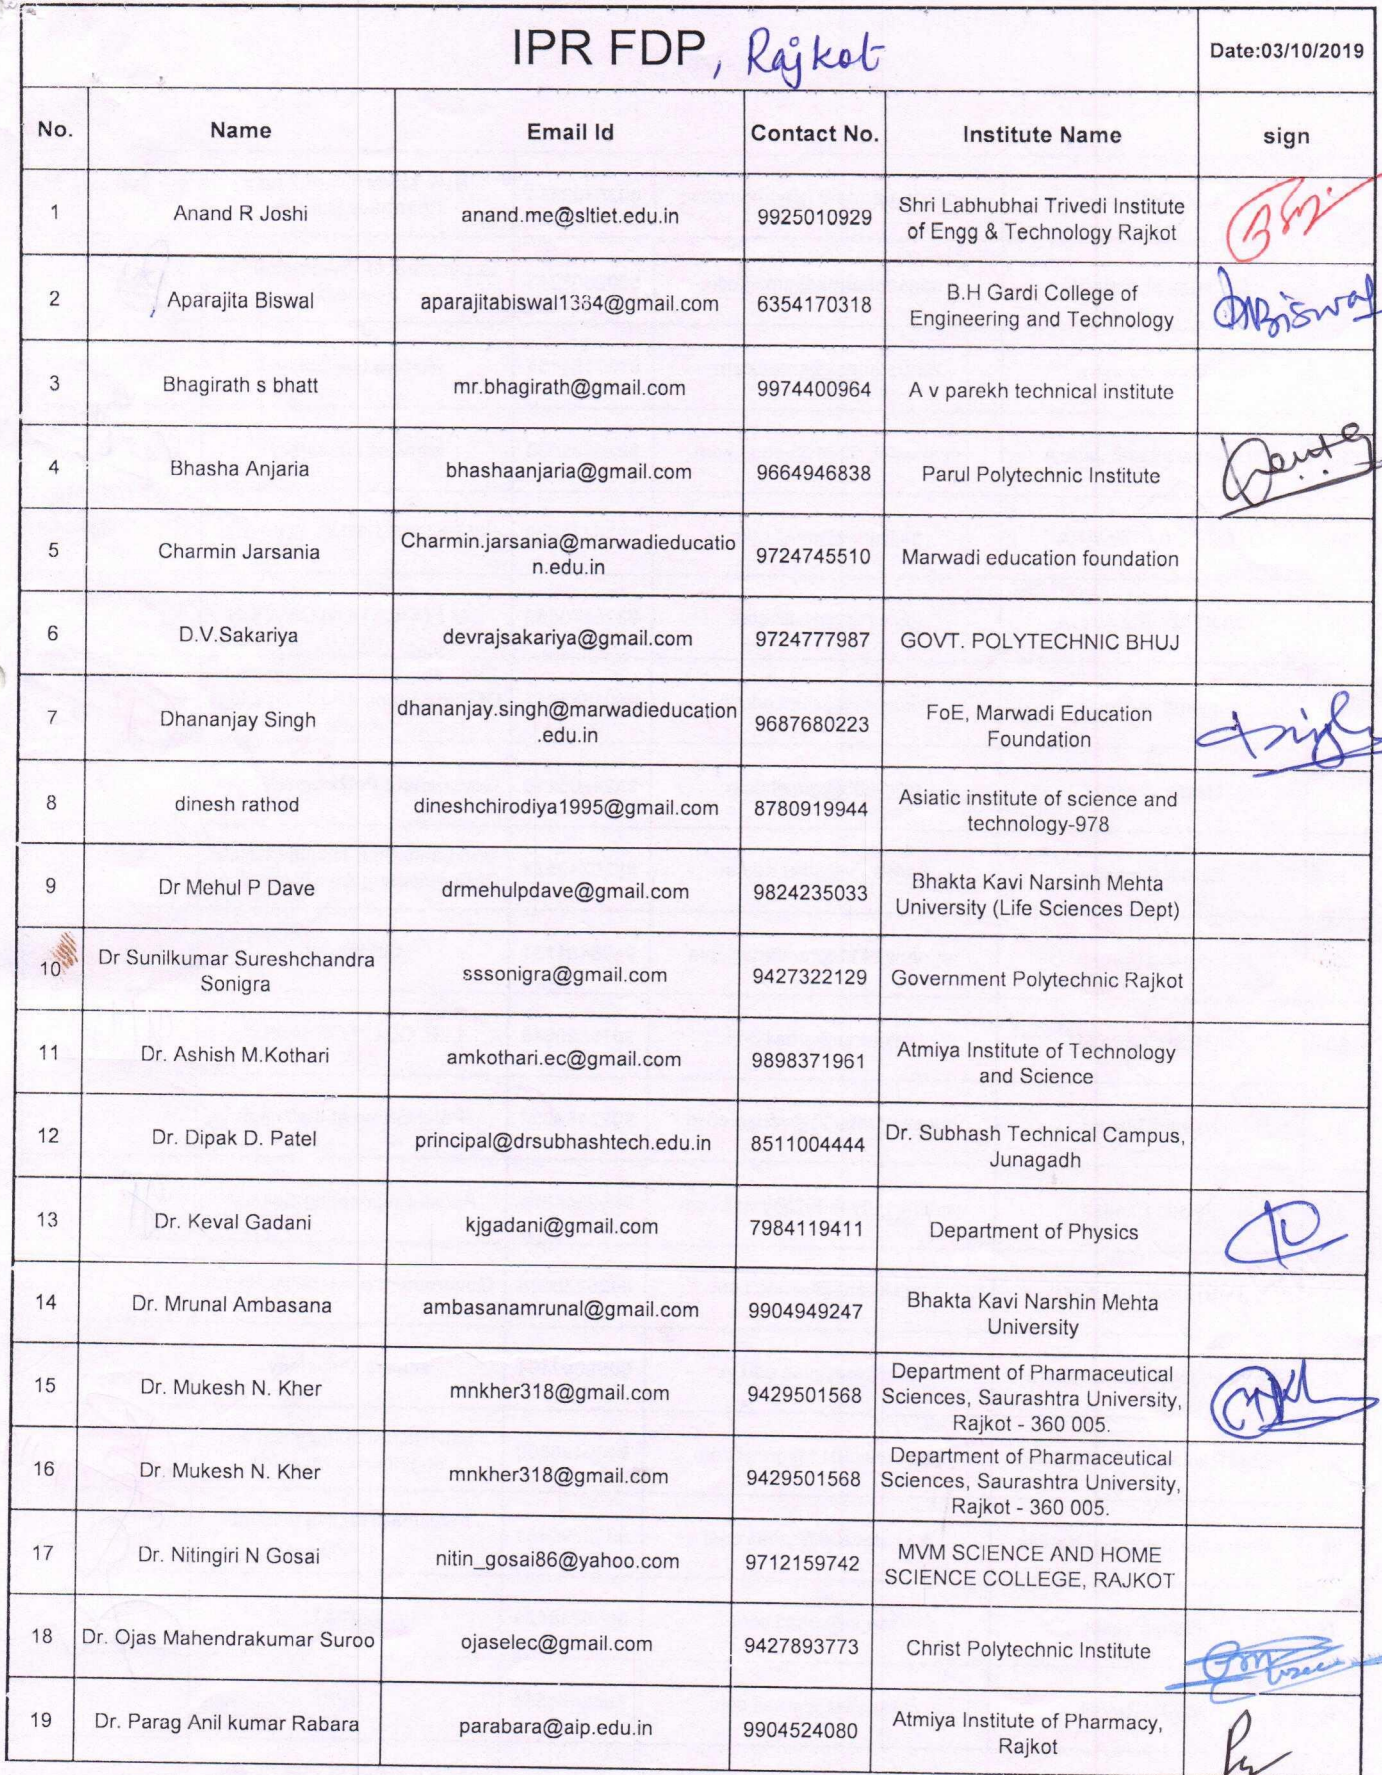 IPR FDP, Rajkot
Date:03/10/2019
No. Name Email Id Contact No. Institute Name sign
1 Anand R Joshi anand.me@sltiet.edu.in 9925010929 Shri Labhubhai Trivedi Institute
of Engg & Technology Rajkot
2 Aparajita Biswal aparajitabiswal1334@gmail.com 6354170318 B.H Gardi College of
Engineering and Technology
ABiswal
3 Bhagirath s bhatt mr.bhagirath@gmail.com 9974400964 A v parekh technical institute
4 Bhasha Anjaria bhashaanjaria@gmail.com 9664946838 Parul Polytechnic Institute
5 Charmin Jarsania Charmin.jarsania@marwadieducatio
n.edu.in
9724745510 Marwadi education foundation
6 D.V.Sakariya devrajsakariya@gmail.com 9724777987 GOVT. POLYTECHNIC BHUJ
7 Dhananjay Singh dhananjay.singh@marwadieducation
.edu.in
9687680223 FoE, Marwadi Education
Foundation
8 dinesh rathod dineshchirodiya1995@gmail.com 8780919944 Asiatic institute of science and
technology-978
9 Dr Mehul P Dave drmehulpdave@gmail.com 9824235033 Bhakta Kavi Narsinh Mehta
University (Life Sciences Dept)
10 Dr Sunilkumar Sureshchandra
Sonigra
sssonigra@gmail.com 9427322129 Government Polytechnic Rajkot
11 Dr. Ashish M.Kothari amkothari.ec@gmail.com 9898371961 Atmiya Institute of Technology
and Science
12 Dr. Dipak D. Patel principal@drsubhashtech.edu.in 8511004444 Dr. Subhash Technical Campus,
Junagadh
13 Dr. Keval Gadani kjgadani@gmail.com 7984119411 Department of Physics
14 Dr. Mrunal Ambasana ambasanamrunal@gmail.com 9904949247 Bhakta Kavi Narshin Mehta
University
15 Dr. Mukesh N. Kher mnkher318@gmail.com 9429501568 Department of Pharmaceutical
Sciences, Saurashtra University,
Rajkot - 360 005.
16 Dr. Mukesh N. Kher mnkher318@gmail.com 9429501568 Department of Pharmaceutical
Sciences, Saurashtra University,
Rajkot - 360 005.
17 Dr. Nitingiri N Gosai nitin_gosai86@yahoo.com 9712159742 MVM SCIENCE AND HOME
SCIENCE COLLEGE, RAJKOT
18 Dr. Ojas Mahendrakumar Suroo ojaselec@gmail.com 9427893773 Christ Polytechnic Institute
19 Dr. Parag Anil kumar Rabara parabara@aip.edu.in 9904524080 Atmiya Institute of Pharmacy,
Rajkot